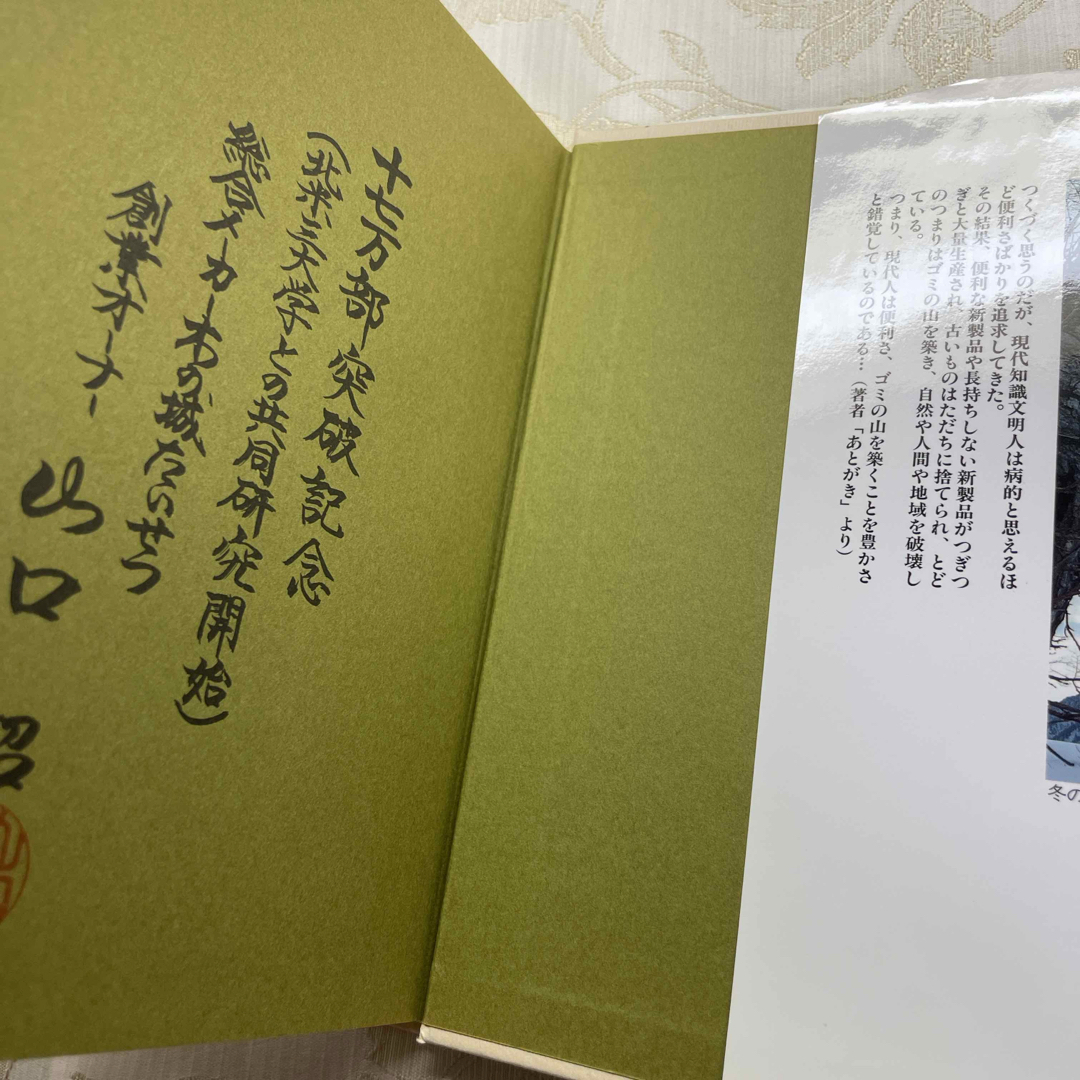 つくづく思うのだが、現代知識文明人は病的と思えるほ
ど便利さばかりを追求してきた。
その結果、便利な新製品や長持ちしない新製品がつぎつ
ぎと大量生産され、古いものはただちに捨てられ、とど
のつまりはゴミの山を築き、自然や人間や地域を破壊し
ている。
つまり、現代人は便利さ、ゴミの山を築くことを豊かさ
と錯覚しているのである…（著者「あとがき」より）
冬の
十七万部突破記念
大学との共同研究開始)
総合メーカー木の城たいせつ
創業オーナー
山口 昭